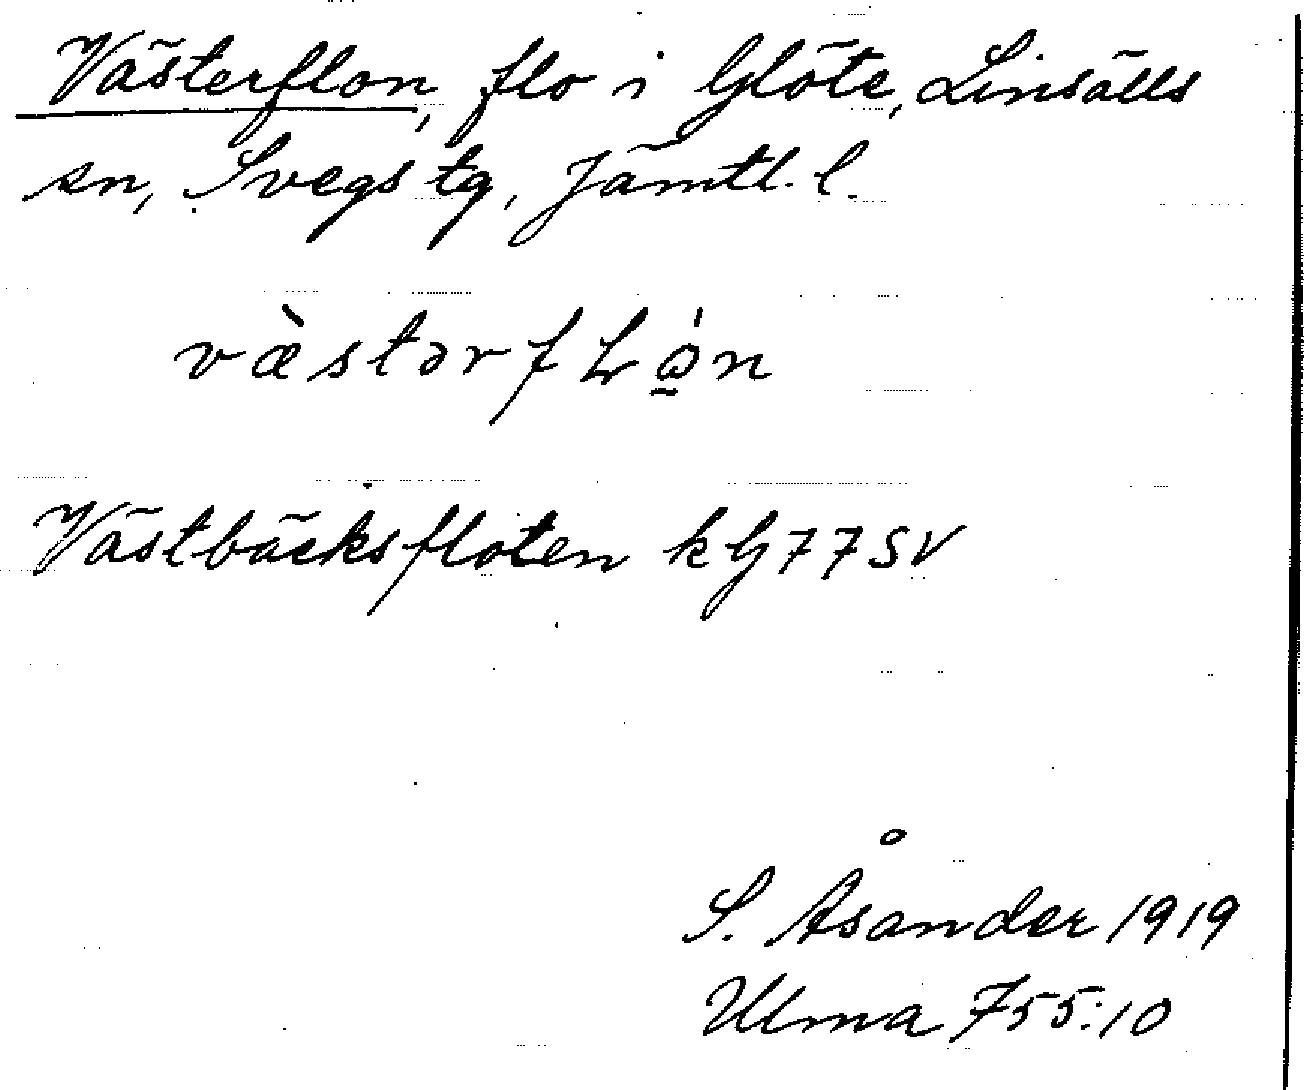 Västerflon, flo i Glöte, Linsälls
sn, Svegs tg, Jämtl. l.
væ̀stərfLǫ́n
Västbäcksfloten kG77SV
S. Åsander 1919
Ulma 755:10